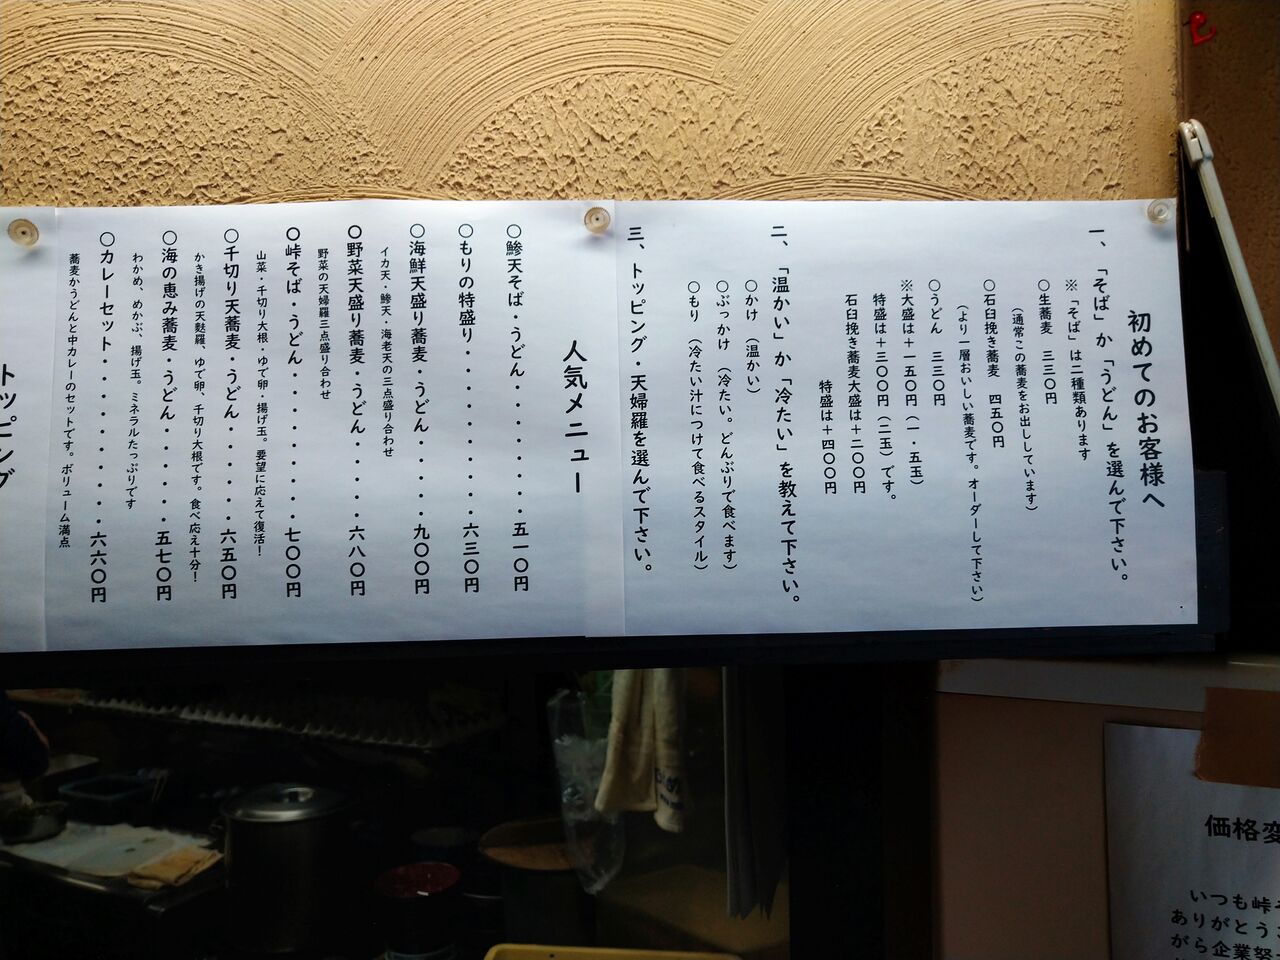 初めてのお客様へ
一、「そば」か「うどん」を選んで下さい。
※「そば」は二種類あります
〇生蕎麦　三三〇円
（通常この蕎麦をお出ししています）
〇石臼挽き蕎麦　四五〇円
（より一層おいしい蕎麦です。オーダーして下さい）
〇うどん　三三〇円
※大盛は＋一五〇円（一・五玉）
特盛は＋三〇〇円（二玉）です。
石臼挽き蕎麦大盛は＋二〇〇円
特盛は＋四〇〇円
二、「温かい」か「冷たい」を教えて下さい。
〇かけ（温かい）
〇ぶっかけ（冷たい。どんぶりで食べます）
〇もり（冷たい汁につけて食べるスタイル）
三、トッピング・天婦羅を選んで下さい。
人気メニュー
〇鯵天そば・うどん・・・・・・・・五一〇円
〇もりの特盛り・・・・・・・・・六三〇円
〇海鮮天盛り蕎麦・うどん・・・・・九〇〇円
イカ天・鯵天・海老天の三点盛り合わせ
〇野菜天盛り蕎麦・うどん・・・・・六八〇円
野菜の天婦羅三点盛り合わせ
〇峠そば・うどん・・・・・・・・・七〇〇円
山菜・千切り大根・ゆで卵・揚げ玉。要望に応えて復活！
〇千切り天蕎麦・うどん・・・・・・六五〇円
かき揚げの天麩羅、ゆで卵、千切り大根です。食べ応え十分！
〇海の恵み蕎麦・うどん・・・・・・五七〇円
わかめ、めかぶ、揚げ玉。ミネラルたっぷりです
〇カレーセット・・・・・・・・・・六六〇円
蕎麦かうどんと中カレーのセットです。ボリューム満点
トッピング
価格変
いつも峠そ
ありがとう
がら企業努